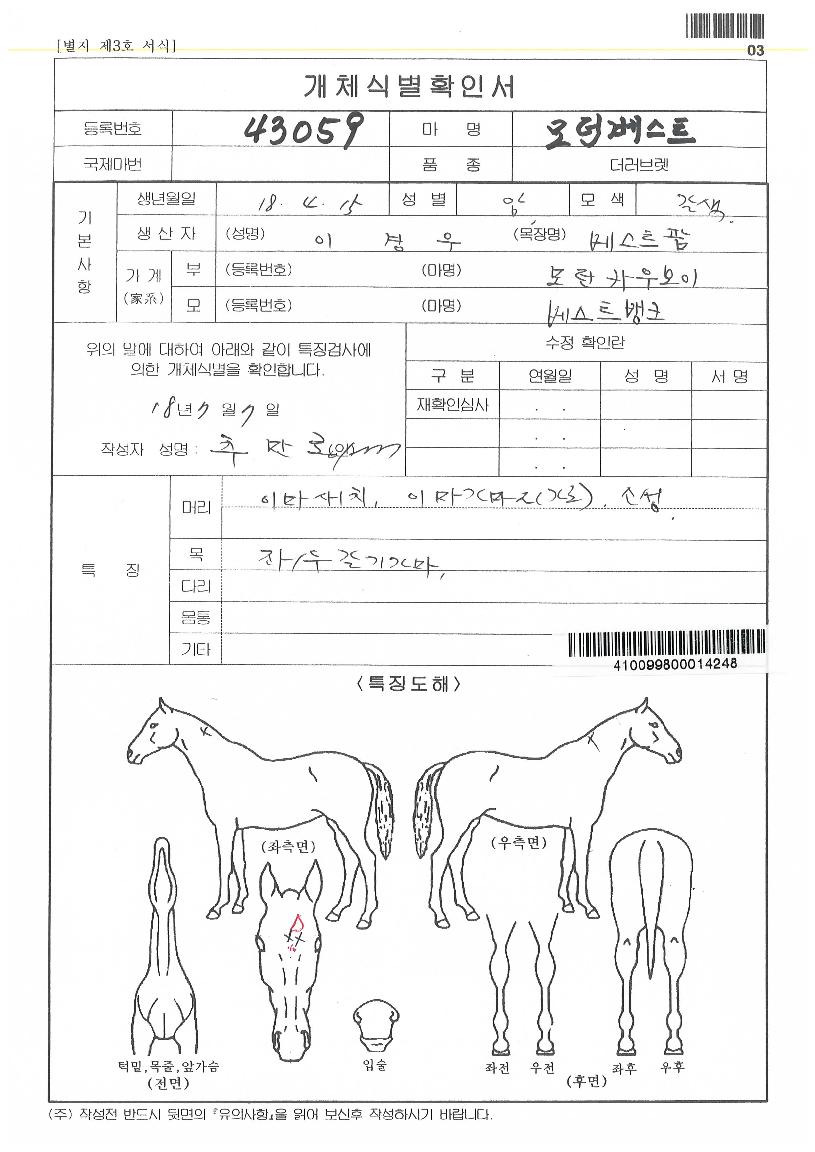 [별지 제3호 서식]
03
개체식별확인서
등록번호 43059 마 명 모던베스트
국제마번 품 종 더러브렛
기본사항
생년월일 18. 4. 15 성 별 암 모 색 갈색.
생 산 자 (성명) 이 경 우 (목장명) 베스트팜
가 계 (家系) 부 (등록번호) (마명) 모란카우보이
모 (등록번호) (마명) 베스트뱅크
위의 말에 대하여 아래와 같이 특징검사에
의한 개체식별을 확인합니다.
18년 7 월 7 일
작성자 성명 : 추 만 호
수정 확인란
구 분 연월일 성 명 서 명
재확인심사 . .
. .
. .
특 징
머리 이마새치, 이마가마2(가로). 소성.
목 좌/우갈기가마,
다리
몸통
기타
410099800014248
<특징도해>
(좌측면) (우측면)
턱밑,목줄,앞가슴
(전면)
입술
좌전 우전 좌후 우후
(후면)
(주) 작성전 반드시 뒷면의 『유의사항』을 읽어 보신후 작성하시기 바랍니다.